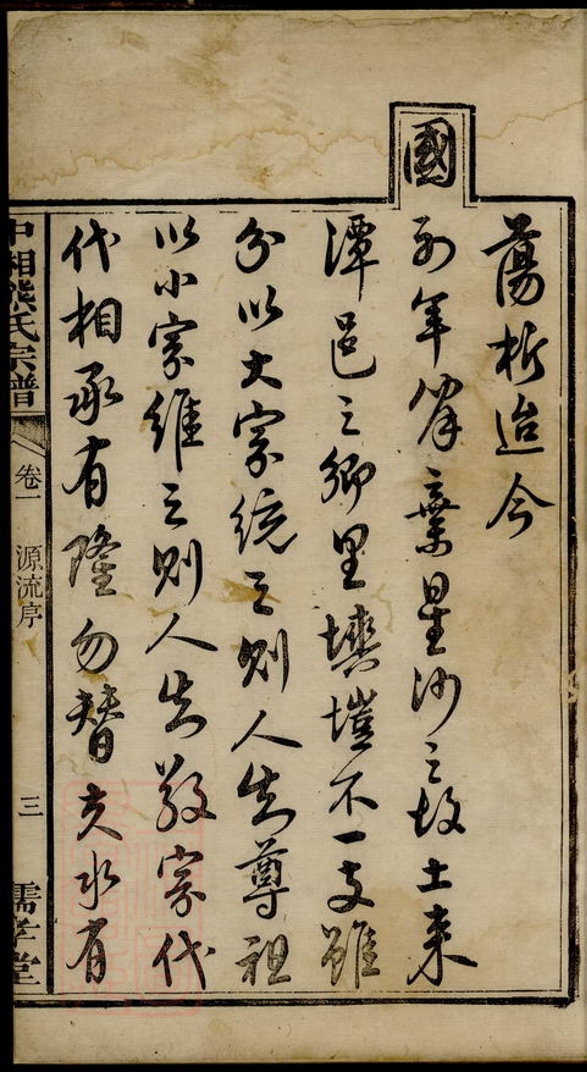 蕩析迨今
國
列年爰棄星沙之故土来
潭邑之鄉里壎塏不一支雖
分以大宗統之則人知尊祖
以小宗維之則人知敬宗代
代相承有隆勿替夫水有
中湘熊氏宗譜
卷一
源流序
三
孺孝堂